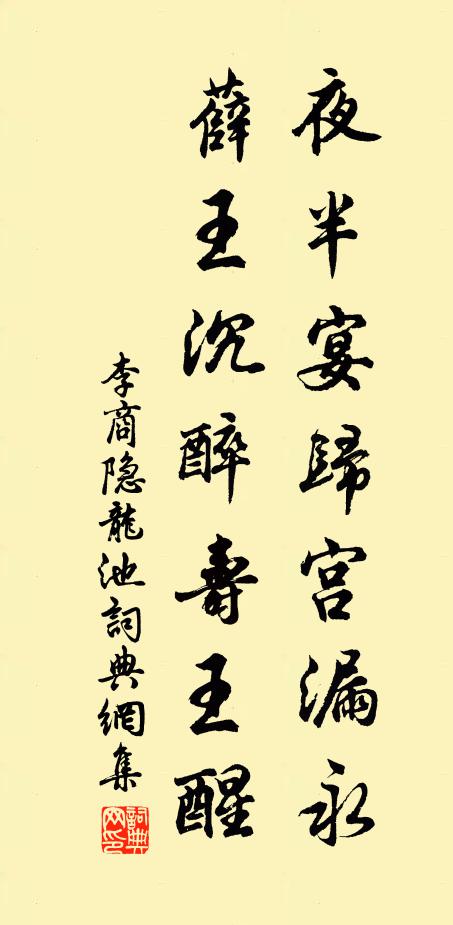 夜半宴歸宫漏永
薛王沉醉壽王醒
李商隐龍池詞典網集
詞典網印